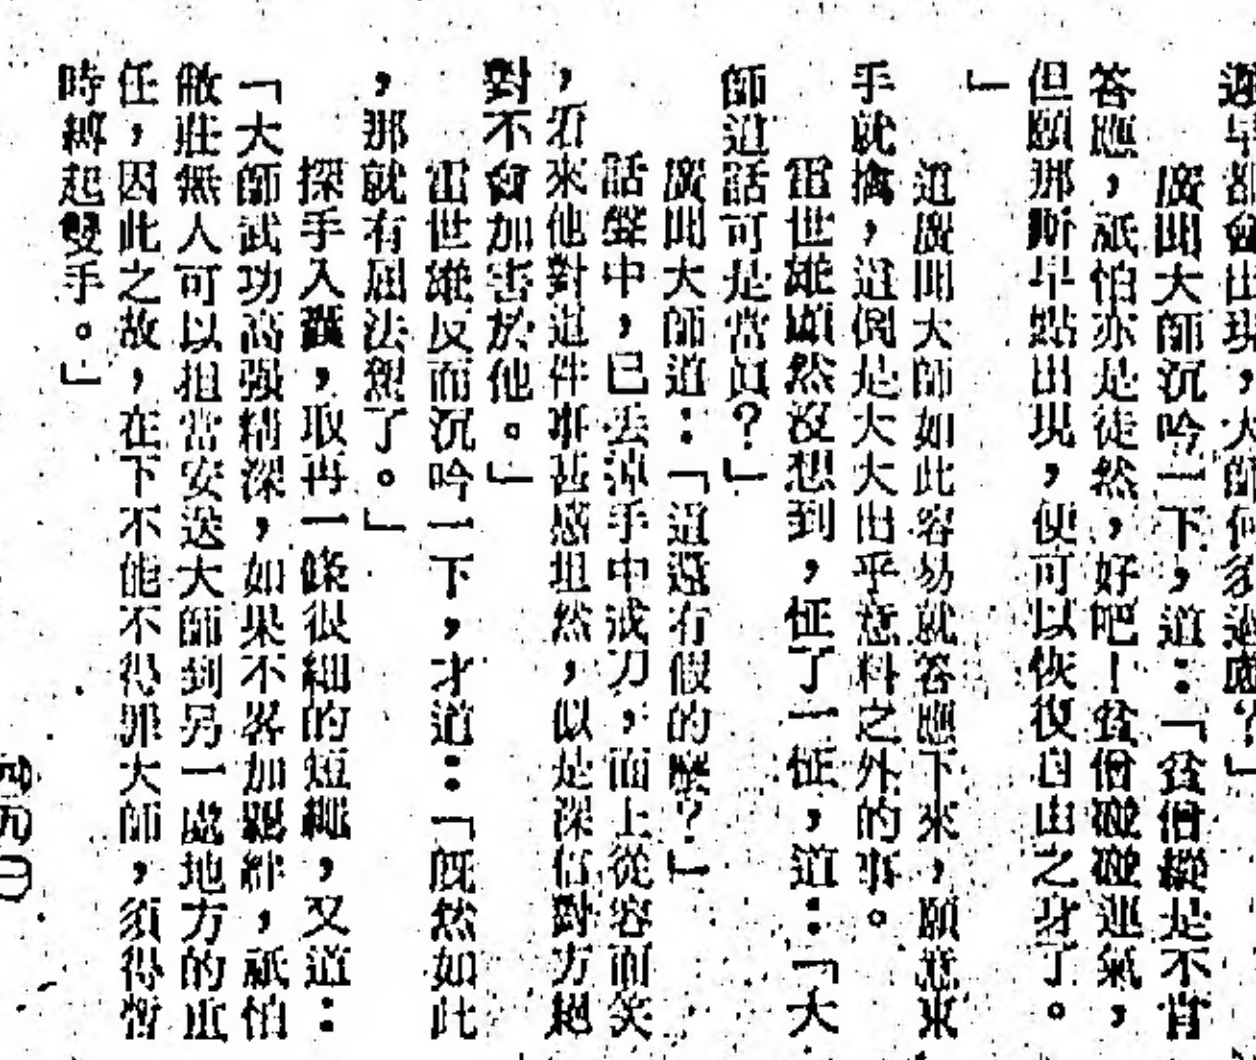 遲早都會出現，大師何須過慮？」
廣聞大師沉吟一下，道：「貧僧縱是不肯
答應，祇怕亦是徒然，好吧！貧僧碰碰運氣，
但願那厮早點出現，便可以恢復自由之身了。
」
這廣聞大師如此容易就答應下來，願意束
手就擒，這倒是大大出乎意料之外的事。
雷世雄顯然沒想到，怔了一怔，道：「大
師這話可是當眞？」
廣聞大師道：「這還有假的麼？」
話聲中，已丢掉手中戒刀，面上從容而笑
，看來他對這件事甚感坦然，似是深信對方絕
對不會加害於他。」
雷世雄反而沉吟一下，才道：「既然如此
，那就有屈法駕了。」
探手入囊，取出一條很細的短繩，又道：
「大師武功高强精深，如果不畧加羈絆，祇怕
敝莊無人可以担當安送大師到另一處地方的重
任，因此之故，在下不能不得罪大師，須得暫
時縛起雙手。」